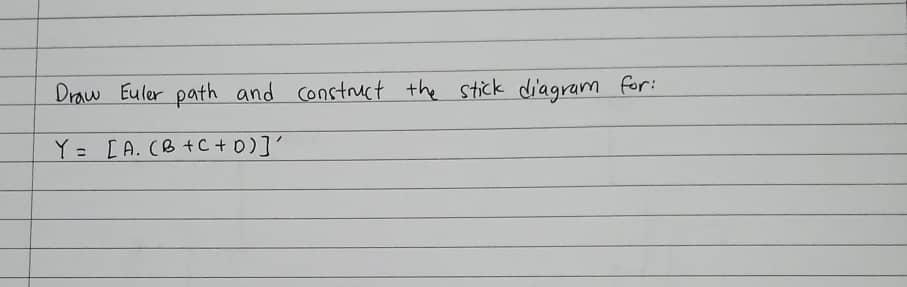 Draw Euler path and construct the stick diagram for:
Y = [A. (B + C + D)]'